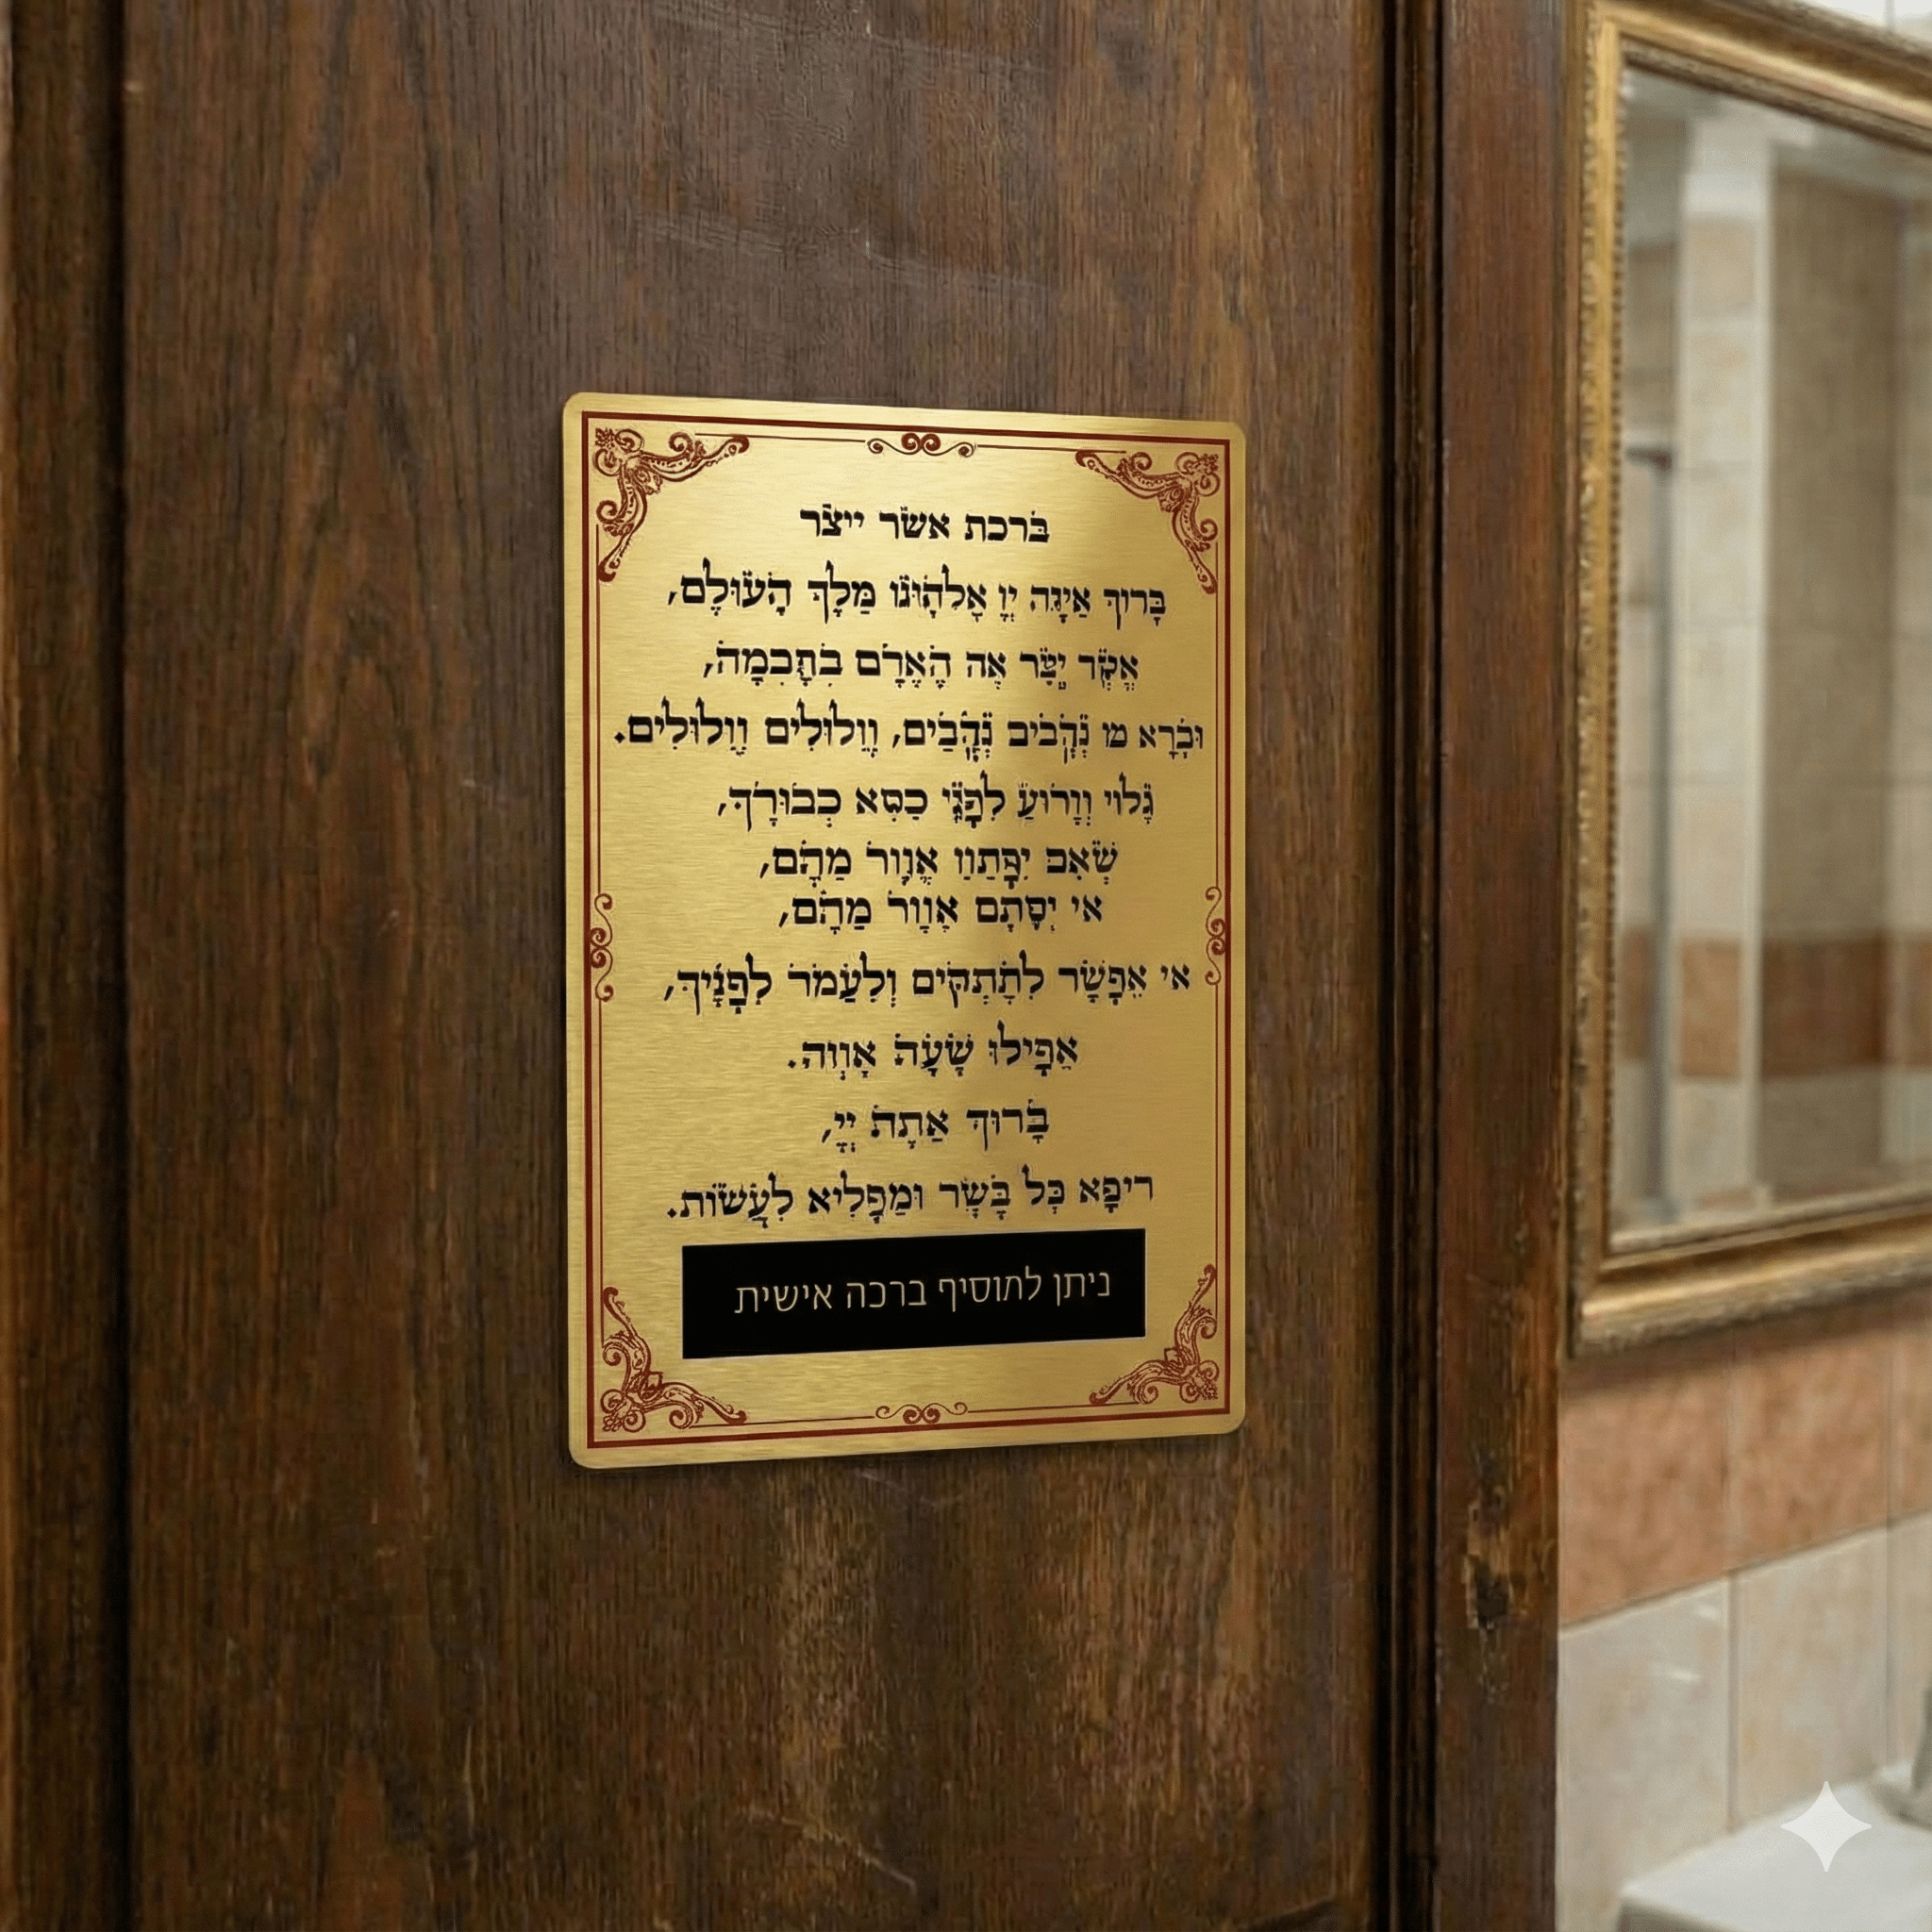 ברכת אשר ייצר
בָּרוּךְ אַיָּנָּה יְיָ אֱלֹהָוּנוּ מַלָךְ הָעוּלָם,
אֱשְׁר יָצַר אֶה הָאֲדָם בִּתָכִמָה,
וּבָרָא מו נְקָבִיב נְקָבַים, וֲלוּלִים וֲלוּלִים.
גָלוי וְוָרוּעַ לִפָנֵי כַסִא כְבוּרָךְ,
שְׁאִב יִפָּתַוַ אֱוָור מַהָם,
אי יְסָתָם אֲוָור מַהָם,
אי אִפָשָׁר לִתָתְקִים וְלִעַמר לִפָנָיךְ,
אֲפָילוּ שָׁעָה אָוְוה.
בָּרוּךְ אַתָה יְיָ,
ריפָא כָל בָּשָׂר וּמַפָלִיא לַעֲשׂוֹת.
ניתן למוסיף ברכה אישית